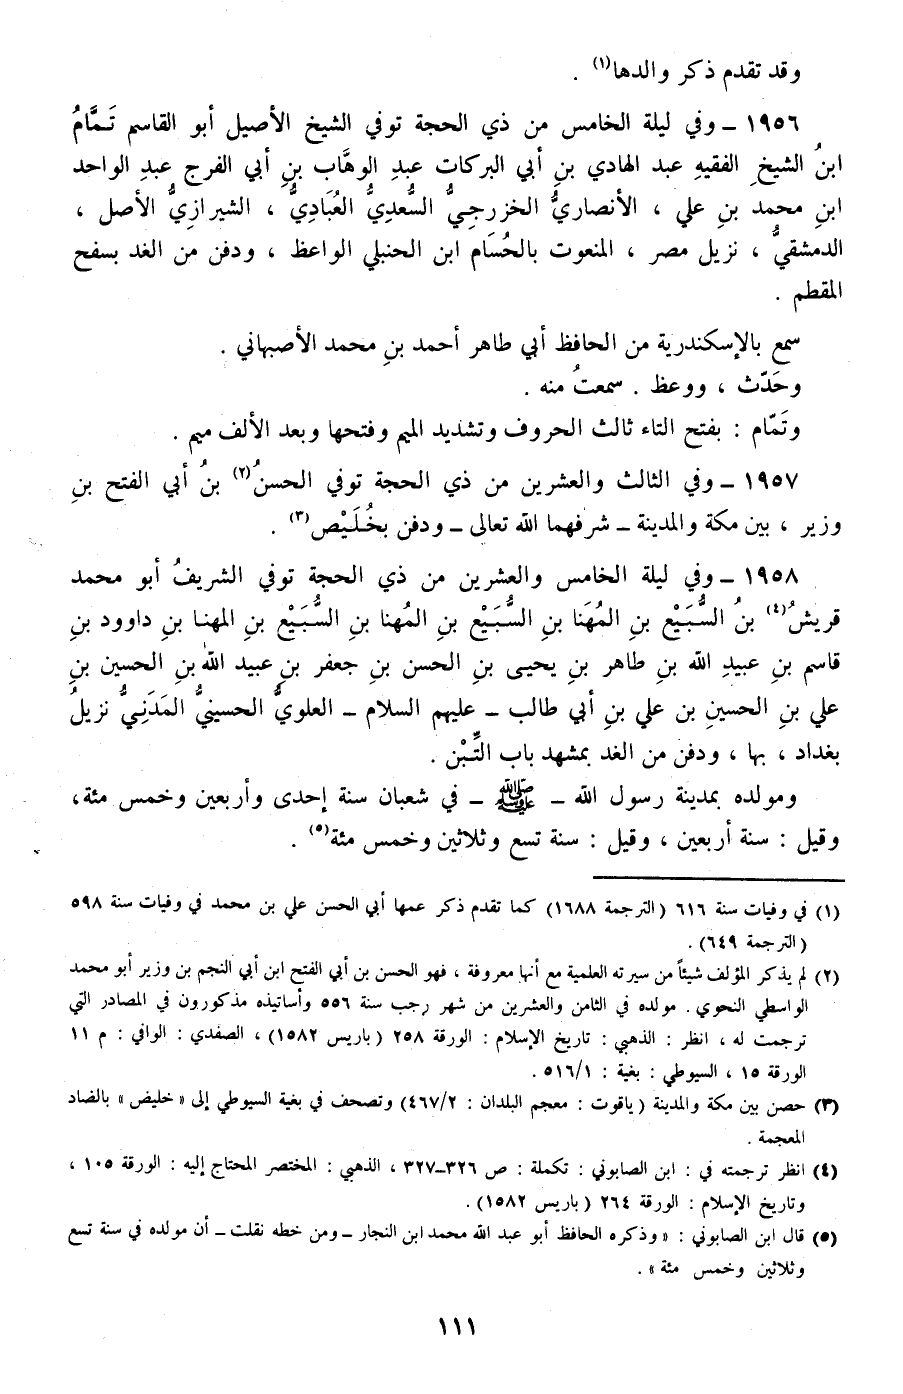 وقد تقدم ذكر والدها(١) .
١٩٥٦ ـ وفي ليلة الخامس من ذي الحجة توفي الشيخ الأصيل أبو القاسم تَمَّامُ
ابنُ الشيخِ الفقيهِ عبد الهادي بنِ أبي البركات عبدِ الوهَّاب بنِ أبي الفرج عبدِ الواحد
ابنِ محمد بنِ علي ، الأنصاريُّ الخزرجيُّ السُّعديُّ العُبَاديُّ ، الشيرازيُّ الأصل ،
الدمشقيُّ ، نزيل مصر ، المنعوت بالحُسَام ابن الحنبلي الواعظ ، ودفن من الغد بسفح
المقطم .
سمع بالإسكندرية من الحافظ أبي طاهر أحمد بنِ محمد الأصبهاني .
وحَدّث ، ووعظ . سمعتُ منه .
وتَمّام : بفتح التاء ثالث الحروف وتشديد الميم وفتحها وبعد الألف ميم .
١٩٥٧ ـ وفي الثالث والعشرين من ذي الحجة توفي الحسنُ(٢) بنُ أبي الفتح بنِ
وزير ، بين مكة والمدينة ـ شرفهما الله تعالى ـ ودفن بخُلَيْص(٣) .
١٩٥٨ ـ وفي ليلة الخامس والعشرين من ذي الحجة توفي الشريفُ أبو محمد
قريشُ(٤) بنُ السُّبَيْع بنِ المُهَنا بنِ السُّبَيْع بنِ المُهنا بنِ السُّبَيْع بنِ المهنا بنِ داوود بنِ
قاسم بنِ عبيدِ الله بنِ طاهر بنِ يحيى بنِ الحسن بنِ جعفر بنِ عبيد الله بنِ الحسين بنِ
علي بنِ الحسينِ بن علي بنِ أبي طالب ـ عليهم السلام ـ العلويُّ الحسينيُّ المَدَنِيُّ نزيلُ
بغداد ، بها ، ودفن من الغد بمشهد باب التِّبْن .
ومولده بمدينة رسول الله ـ ﷺ ـ في شعبان سنة إحدى وأربعين وخمس مئة،
وقيل : سنة أربعين ، وقيل : سنة تسع وثلاثين وخمس مئة(٥) .
(١) في وفيات سنة ٦١٦ (الترجمة ١٦٨٨) كما تقدم ذكر عمها أبي الحسن علي بن محمد في وفيات سنة ٥٩٨
(الترجمة ٦٤٩) .
(٢) لم يذكر المؤلف شيئاً من سيرته العلمية مع أنها معروفة ، فهو الحسن بن أبي الفتح ابن أبي النجم بن وزير أبو محمد
الواسطي النحوي . مولده في الثامن والعشرين من شهر رجب سنة ٥٥٦ وأساتيذه مذكورون في المصادر التي
ترجمت له ، انظر : الذهبي : تاريخ الإسلام : الورقة ٢٥٨ (باريس ١٥٨٢) ، الصفدي : الوافي : م ١١
الورقة ١٥ ، السيوطي : بغية : ٥١٦/١ .
(٣) حصن بين مكة والمدينة (ياقوت : معجم البلدان : ٤٦٧/٢) وتصحف في بغية السيوطي إلى «خليض» بالضاد
المعجمة .
(٤) انظر ترجمته في : ابن الصابوني : تكملة : ص ٣٢٦ـ٣٢٧ ، الذهبي : المختصر المحتاج إليه : الورقة ١٠٥ ،
وتاريخ الإسلام : الورقة ٢٦٤ (باريس ١٥٨٢) .
(٥) قال ابن الصابوني : «وذكره الحافظ أبو عبد الله محمد ابن النجار ـ ومن خطه نقلت ـ أن مولده في سنة تسع
وثلاثين وخمس مئة» .
١١١